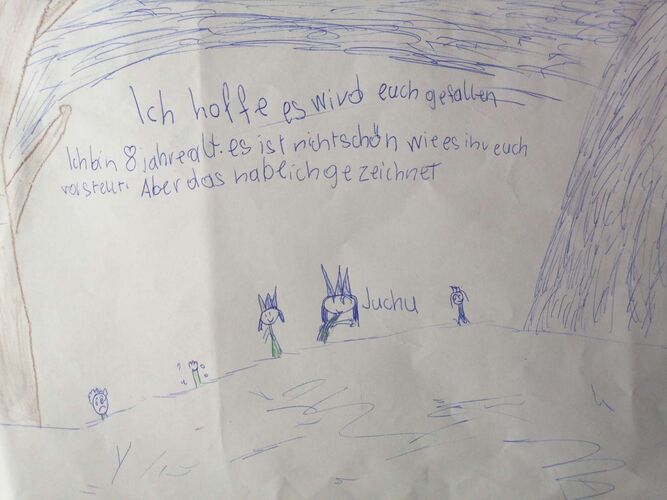 Ich hoffe es wird euch gefallen
Ich bin 8 jahre alt. es ist nicht schön wie es ihr euch
vorsteut. Aber das hab ich gezeichnet
Juchu